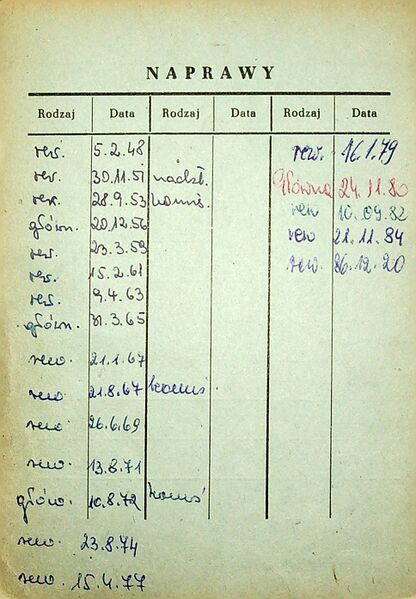 NAPRAWY
Rodzaj Data Rodzaj Data Rodzaj Data
rew. 5.2.48
rew. 30.11.51 nadzł.
rew. 28.9.53 komis.
główn. 20.12.56
rew. 23.3.59
rew. 15.2.61
rew. 9.4.63
główn. 31.3.65
rew. 21.1.67
rew. 21.8.67 komis
rew. 26.6.69
rew. 13.8.71
główn. 10.8.72 komis
rew. 23.8.74
rew. 15.4.77
rew. 16.1.79
Główna 24.11.80
rew 10.09.82
rew 21.11.84
rew. 86.12.20